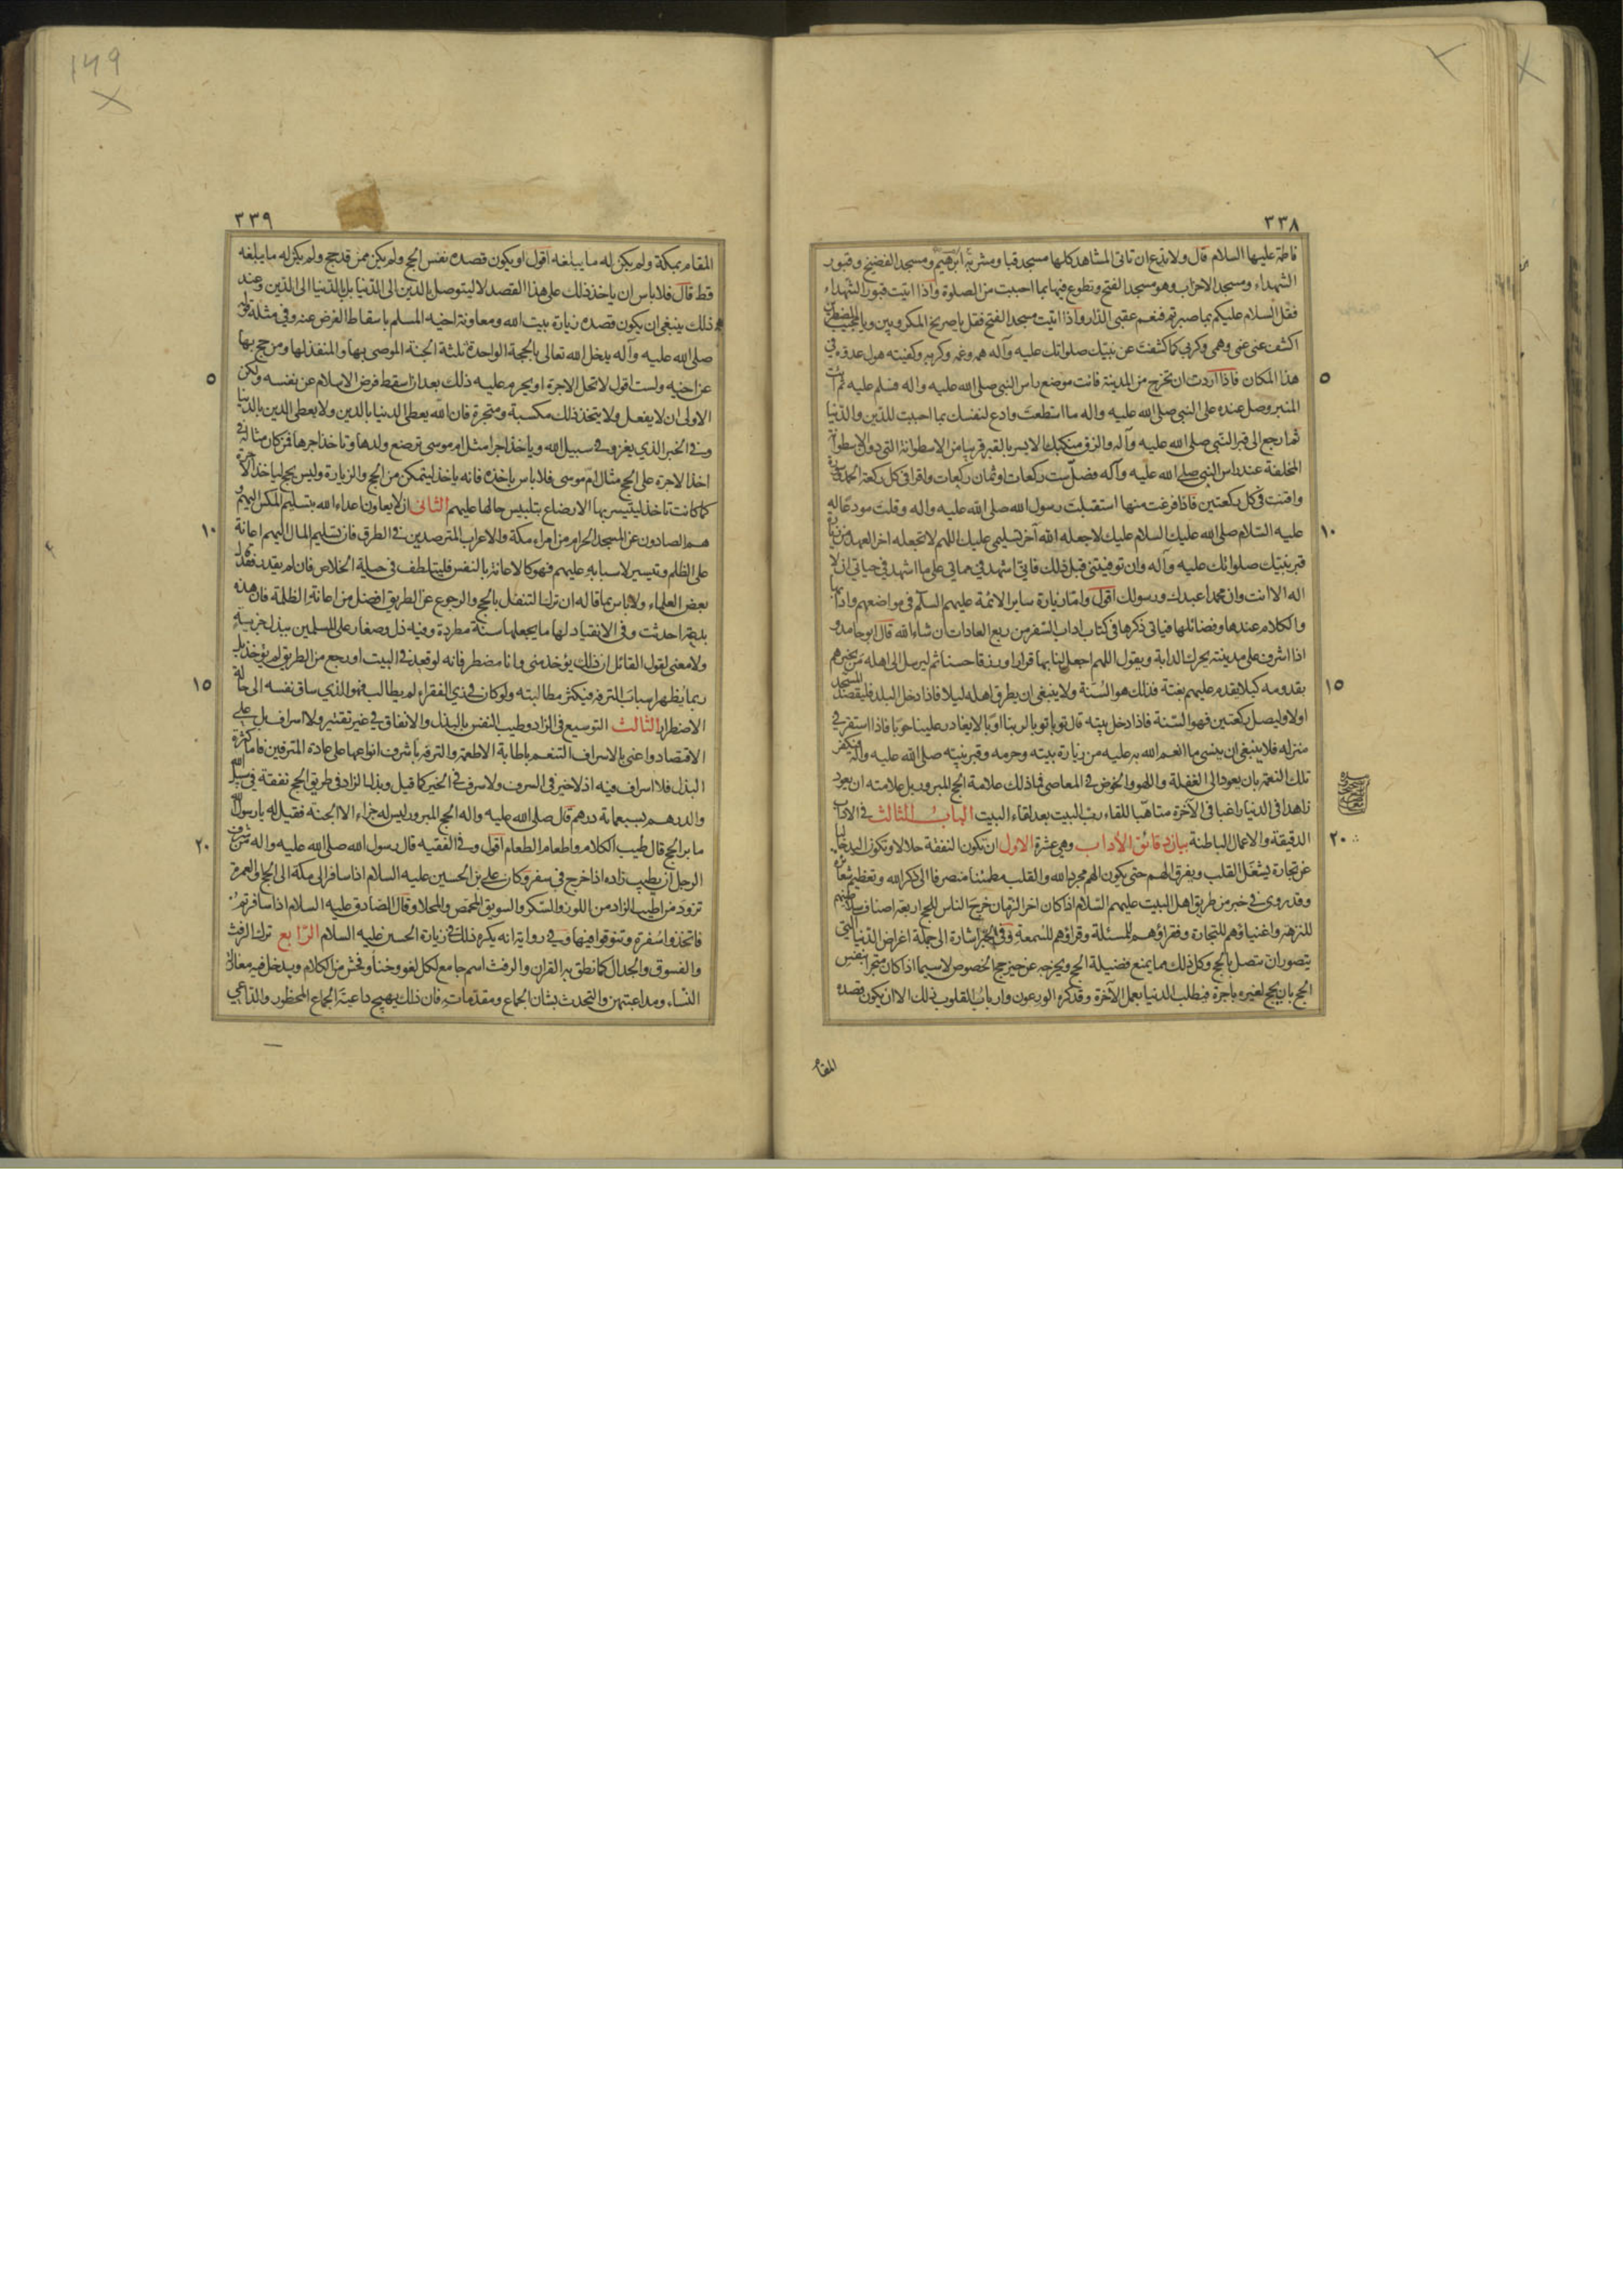 ٣٣٨
فاطمة عليها السلام قال ولا تدع ان تاتى المشاهد كلها مسجد قبا ومشربة ابرهيم ومسجد الفضيخ وقبور
الشهداء ومسجد الاحزاب وهو مسجد الفتح وتطوع فيها بما احببت من الصلوة واذا اتيت قبور الشهداء
فقل السلام عليكم بما صبرتم فنعم عقبى الدار واذا اتيت مسجد الفتح فقل يا صريخ المكروبين ويا مجيب المضطرين
اكشف عنى غمى وهمى وكربى كما كشفت عن نبيك صلواتك عليه وآله همه وغمه وكربه وكفيته هول عدوه فى
هذا المكان فاذا اردت ان تخرج من المدينة فائت موضع راس النبى صلى الله عليه واله فسلم عليه ثم ائت
المنبر وصل عنده على النبى صلى الله عليه واله ما استطعت وادع لنفسك بما احببت للدين والدنيا
ثم ارجع الى قبر النبى صلى الله عليه وآله والزق منكبك الايسر بالقبر قريبا من الاسطوانة التى دون الاسطوانة
المخلفة عند راس النبى صلى الله عليه وآله فصل ست ركعات او ثمان ركعات واقرا فى كل ركعة الحمد وسورة
واقنت فى كل ركعتين فاذا فرغت منها استقبلت رسول الله صلى الله عليه واله وقلت مودعا له
عليه السلام صلى الله عليك السلام عليك لا جعله الله آخر تسليمى عليك اللهم لا تجعله اخر العهد من زيارة
قبر نبيك صلواتك عليه وآله وان توفيتنى قبل ذلك فانى اشهد فى مماتى على ما اشهد فى حياتى ان لا
اله الا انت وان محمدا عبدك ورسولك اقول واما زيارة ساير الائمة عليهم السلم فى مواضعهم واداب
والكلام عندها وفضائلها فياتى ذكرها فى كتاب اداب السفر من ربع العادات ان شاء الله قال ابو حامد و
اذا اشرف على مدينته يحرك الدابة ويقول اللهم اجعل لنا بها قرارا ورزقا حسنا ثم ليرسل الى اهله من يخبرهم
بقدومه كيلا يقدم عليهم بغتة فذلك هو السنة ولا ينبغى ان يطرق اهله ليلا فاذا دخل البلد فليقصد المسجد
اولا وليصل ركعتين فهو السنة فاذا دخل بيته قال توبا توبا لربنا اوبا لا يغادر علينا حوبا فاذا استقر فى
منزله فلا ينبغى ان ينسى ما انعم الله به عليه من زيارة بيته وحرمه وقبر نبيه صلى الله عليه وآله فيكفر
تلك النعم بان يعود الى الغفلة واللهو والخوض فى المعاصى فما ذلك علامة الحج المبرور بل علامته ان يعود
زاهدا فى الدنيا راغبا فى الآخرة متاهبا للقاء رب البيت بعد لقاء البيت الباب الثالث فى الاداب
الدقيقة والاعمال الباطنة بيان دقائق الأداب وهى عشرة الاول ان تكون النفقة حلالا وتكون اليد خالية
عن تجارة يشغل القلب ويفرق الهم حتى يكون الهم مجردا لله والقلب مطمئنا منصرفا الى ذكر الله وتعظيم شعائره
وقد روى فى خبر من طريق اهل البيت عليهم السلام اذا كان اخر الزمان خرج الناس للحج اربعة اصناف سلاطينهم
للنزهة واغنياؤهم للتجارة وفقراؤهم للمسئلة وقراؤهم للسمعة وفى الخبر اشارة الى جملة اغراض الدنيا التى
يتصور ان تتصل بالحج وكل ذلك مما يمنع فضيلة الحج ويخرجه عن حيز حج الخصوص لاسيما اذا كان متجرا بنفس
الحج بان يحج لغيره باجرة فيطلب الدنيا بعمل الآخرة وقد كره الورعون وارباب القلوب ذلك الا ان يكون قصده
المقام
٥
١٠
١٥
٢٠
٣٣٩
المقام بمكة ولم يكن له ما يبلغه اقول او يكون قصده نفس الحج ولم يكن ممن قد حج ولم يكن له ما يبلغه
قط قال فلا باس ان ياخذ ذلك على هذا القصد لا ليتوصل بالدين الى الدنيا بل بالدنيا الى الدين وعند
ذلك ينبغى ان يكون قصده زيارة بيت الله ومعاونة اخيه المسلم باسقاط الفرض عنه وفى مثله قال
صلى الله عليه وآله يدخل الله تعالى بالحجة الواحدة ثلثة الجنة الموصى بها والمنفذ لها ومن حج بها
عن اخيه ولست اقول لا تحل الاجرة او يحرم عليه ذلك بعد ان اسقط فرض الاسلام عن نفسه ولكن
الاولى ان لا يفعل ولا يتخذ ذلك مكسبة ومتجرة فان الله يعطى الدنيا بالدين ولا يعطى الدين بالدنيا
وفى الخبر الذى يغزو فى سبيل الله وياخذ اجرا مثل ام موسى ترضع ولدها وتاخذ اجرها فمن كان مثاله فى
اخذ الاجرة على الحج مثال ام موسى فلا باس باخذه فانه ياخذ ليتمكن من الحج والزيارة وليس يحج لياخذ الاجرة
كما كانت تاخذ ليتيسر بها الارضاع بتلبيس حالها عليهم الثانى ان لا يعاون اعداء الله بتسليم المكس اليهم و
هم الصادون عن المسجد الحرام من امراء مكة والاعراب المترصدين فى الطرق فان تسليم المال اليهم اعانة
على الظلم وتيسير لاسبابه عليهم فهو كالاعانة بالنفس فليتلطف فى حيلة الخلاص فان لم يقدر فقد قال
بعض العلماء ولا باس بما قاله ان ترك التنفل بالحج والرجوع عن الطريق افضل من اعانة الظلمة فان هذه
بدعة احدثت وفى الانقياد لها ما يجعلها سنة مطردة وفيه ذل وصغار على المسلمين ببذل جزية
ولا معنى لقول القائل ان ذلك يؤخذ منى وانا مضطر فانه لو قعد فى البيت او رجع من الطريق لم يؤخذ بل
ربما يظهر اسباب الترفه فيكثر مطالبته ولو كان فى زى الفقراء لم يطالب فهو الذى ساق نفسه الى حالة
الاضطرار الثالث التوسيع فى الزاد وطيب النفس بالبذل والانفاق فى غير تقتير ولا اسراف بل على
الاقتصاد واعنى بالاسراف التنعم باطابة الاطعمة والترفه باشرف انواعها على عادة المترفين فاما كثرة
البذل فلا اسراف فيه اذ لا خير فى السرف ولا سرف فى الخير كما قيل وبذل الزاد فى طريق الحج نفقة فى سبيل الله
والدرهم بسبعمائة درهم قال صلى الله عليه واله الحج المبرور ليس له جزاء الا الجنة فقيل له يا رسول الله
ما بر الحج قال طيب الكلام واطعام الطعام اقول وفى الفقيه قال رسول الله صلى الله عليه واله من شرف
الرجل ان يطيب زاده اذا خرج فى سفر وكان على بن الحسين عليه السلام اذا سافر الى مكة الى الحج والعمرة
تزود من اطيب الزاد من اللوز والسكر والسويق المحمص والمحلا وقال الصادق عليه السلام اذا سافرتم
فاتخذوا سفرة وتنوقوا فيها وفى رواية انه يكره ذلك فى زيارة الحسين عليه السلام الرابع ترك الرفث
والفسوق والجدال كما نطق به القران والرفث اسم جامع لكل لغو وخنا وفحش من الكلام ويدخل فيه مغازلة
النساء ومداعبتهن والتحدث بشان الجماع ومقدماته فان ذلك يهيج داعية الجماع المحظور والداعى
٥
١٠
١٥
٢٠